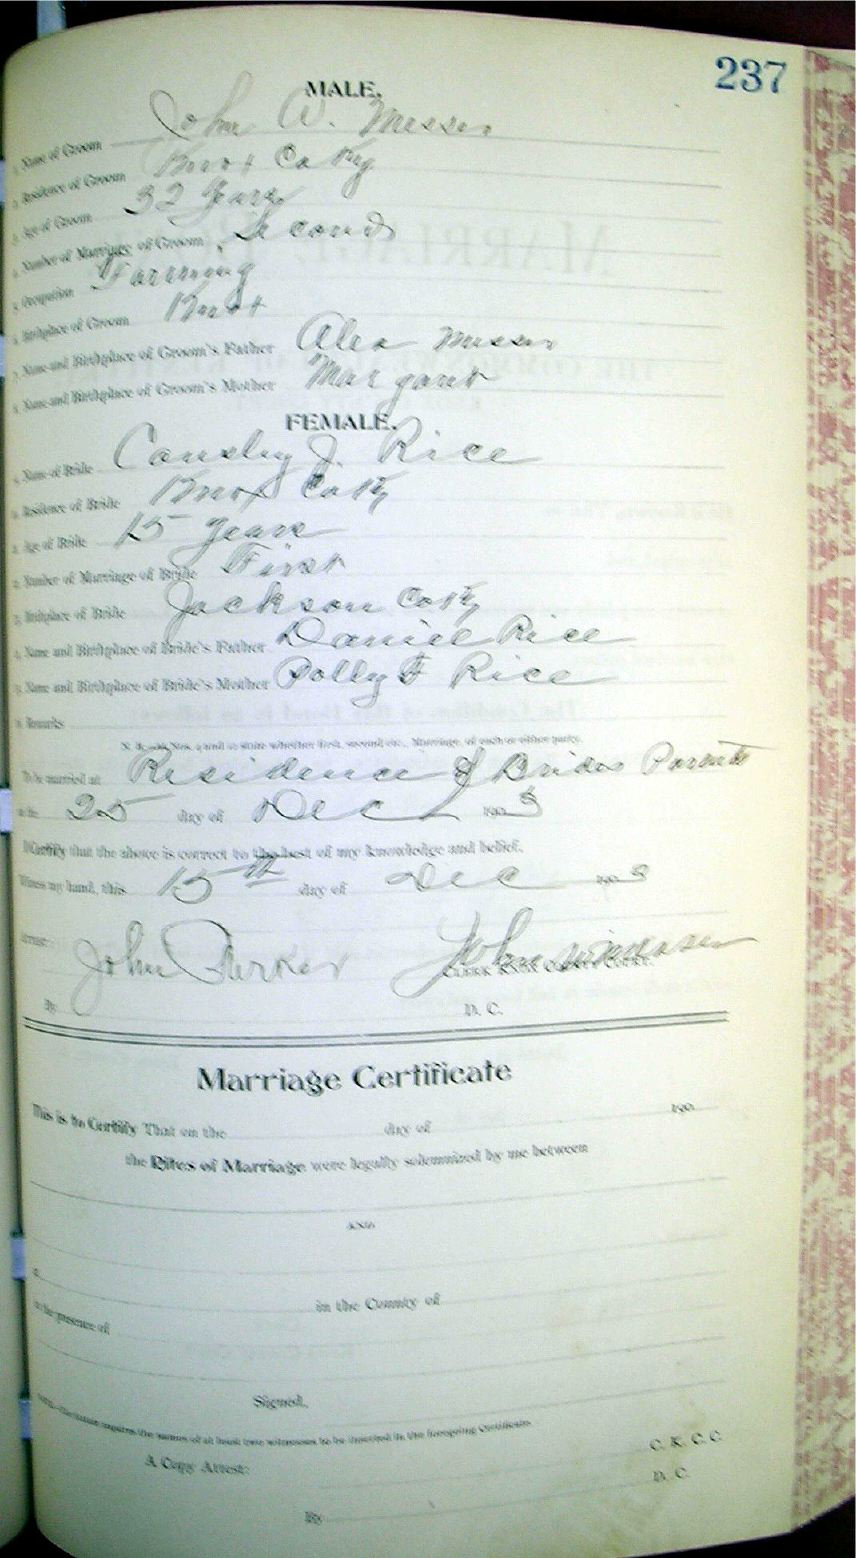 237
MALE.
Name of Groom John W. Messer
Residence of Groom Knox Co Ky
Age of Groom 32 Years
Number of Marriage of Groom Second
Occupation Farming
Birthplace of Groom Knox
Name and Birthplace of Groom's Father Alex Messer
Name and Birthplace of Groom's Mother Margaret
FEMALE.
Name of Bride J. Rice
Residence of Bride Knox Co Ky
Age of Bride 15 years
Number of Marriage of Bride First
Birthplace of Bride Jackson Co Ky
Name and Birthplace of Bride's Father Daniel Rice
Name and Birthplace of Bride's Mother Polly Rice
Remarks
N. B.—At Nos. 4 and 12 state whether first, second etc., Marriage of each or either party.
To be married at Residence of Brides Parents
on the 25 day of Dec 1903
I Certify that the above is correct to the best of my knowledge and belief.
Witness my hand, this 15th day of Dec 1903
Attest: John Parker John
CLERK KNOX COUNTY COURT.
By D. C.
Marriage Certificate
This is to Certify That on the day of 190
the Rites of Marriage were legally solemnized by me between
AND
in the County of
in the presence of
Signed,
NOTE—The statute requires the names of at least two witnesses to be inserted in the foregoing Certificate.
C. K. C. C.
A Copy Attest:
D. C.
By